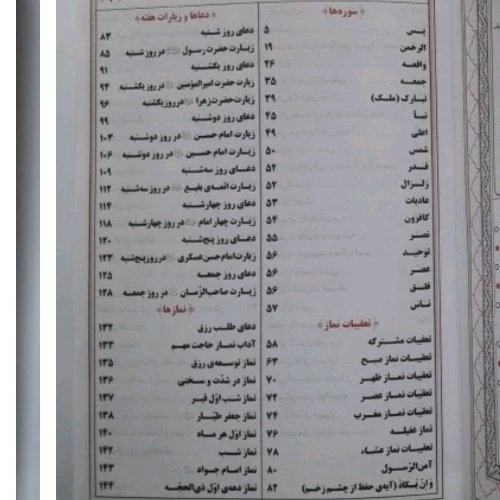 ﴿سوره‌ها﴾
یس ۵
الرحمن ۱۹
واقعه ۲۶
جمعه ۳۵
تبارک (ملک) ۳۹
نبأ ۴۵
اعلی ۴۹
شمس ۵۰
قدر ۵۲
زلزال ۵۲
عادیات ۵۳
کافرون ۵۴
نصر ۵۵
توحید ۵۶
عصر ۵۶
فلق ۵۶
ناس ۵۷
﴿تعقیبات نماز﴾
تعقیبات مشترکه ۵۸
تعقیبات نماز صبح ۶۳
تعقیبات نماز ظهر ۷۰
تعقیبات نماز عصر ۷۲
تعقیبات نماز مغرب ۷۴
نماز غفیله ۷۶
تعقیبات نماز عشاء ۷۸
آمن الرّسول ۸۰
وَ اِنْ یَکادُ (آیه‌ی حفظ از چشم زخم) ۸۲
﴿دعاها و زیارات هفته﴾
دعای روز شنبه ۸۳
زیارت حضرت رسول ﷺ در روز شنبه ۸۵
دعای روز یکشنبه ۹۱
زیارت حضرت امیرالمؤمنین در روز یکشنبه ۹۴
زیارت حضرت زهرا در روز یکشنبه ۹۶
دعای روز دوشنبه ۹۹
زیارت امام حسن در روز دوشنبه ۱۰۳
زیارت امام حسین در روز دوشنبه ۱۰۶
دعای روز سه‌شنبه ۱۰۹
زیارت ائمه‌ی بقیع در روز سه‌شنبه ۱۱۲
دعای روز چهارشنبه ۱۱۴
زیارت چهار امام در روز چهارشنبه ۱۱۸
دعای روز پنج‌شنبه ۱۲۰
زیارت امام حسن عسکری در روز پنج‌شنبه ۱۲۳
دعای روز جمعه ۱۲۵
زیارت صاحب الزّمان در روز جمعه ۱۲۸
﴿نمازها﴾
دعای طلب رزق ۱۳۲
آداب نماز حاجت مهم ۱۳۳
نماز توسعه‌ی رزق ۱۳۵
نماز در شدّت و سختی ۱۳۶
نماز شب اوّل قبر ۱۳۷
نماز جعفر طیّار ۱۳۸
نماز اوّل هر ماه ۱۴۰
نماز شب ۱۴۲
نماز امام جواد ۱۴۳
نماز دهه‌ی اوّل ذی الحجّه ۱۴۴